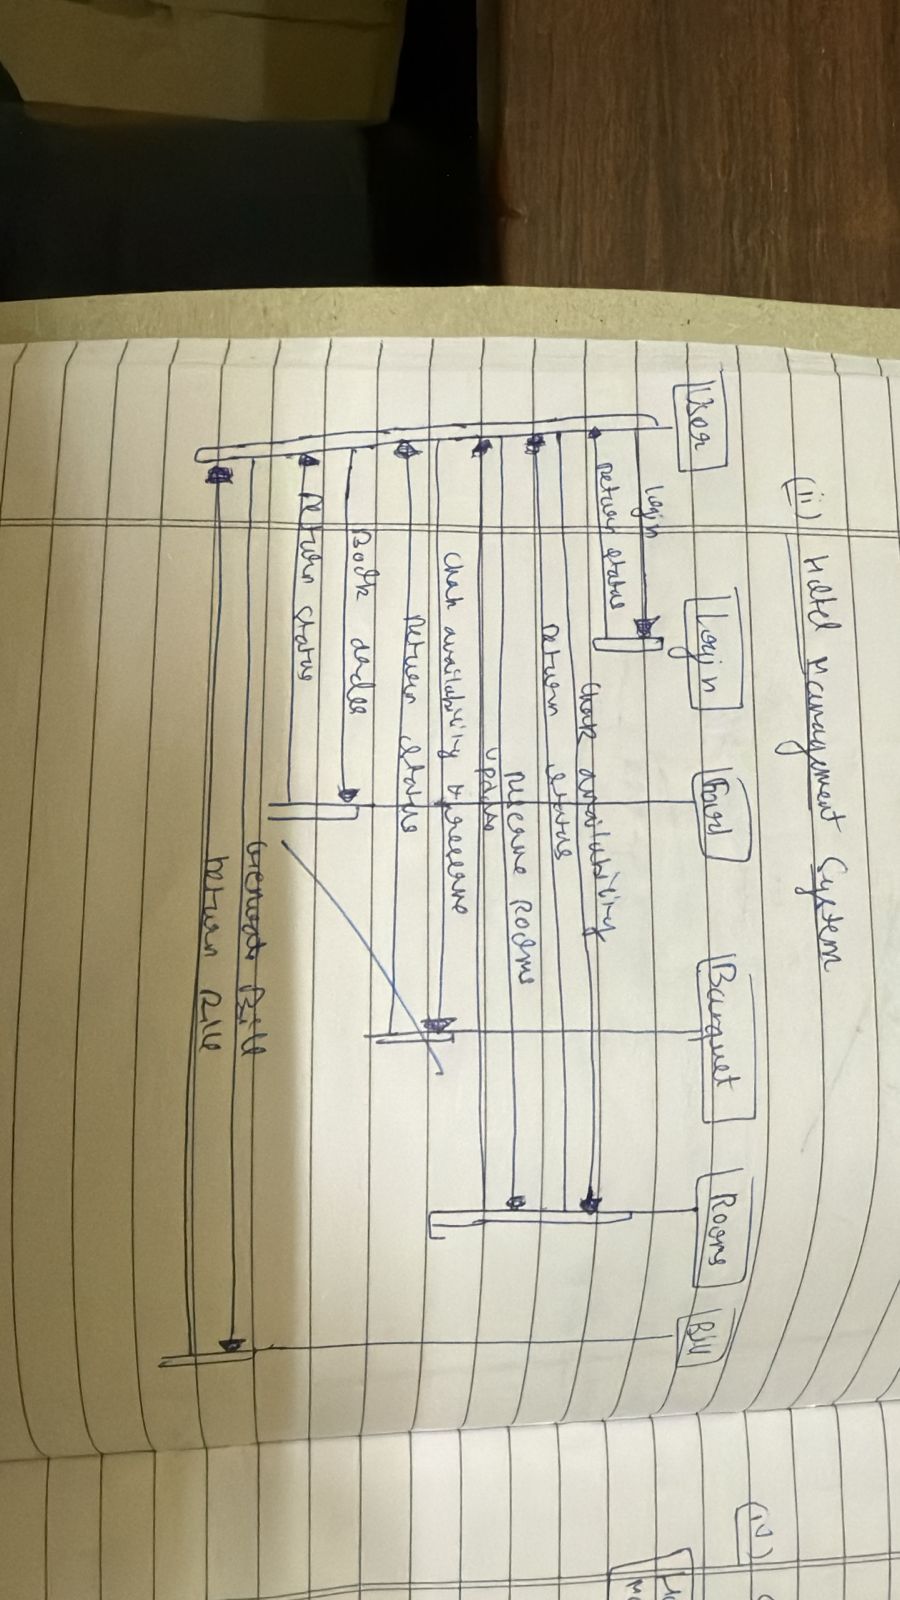 (ii) Hotel Management System
User
Login
Food
Banquet
Rooms
Bill
Login
return status
Check availability
return status
Rooms
update
Check availability &
return status
Book
return status
Bill
return Bill
(iv)